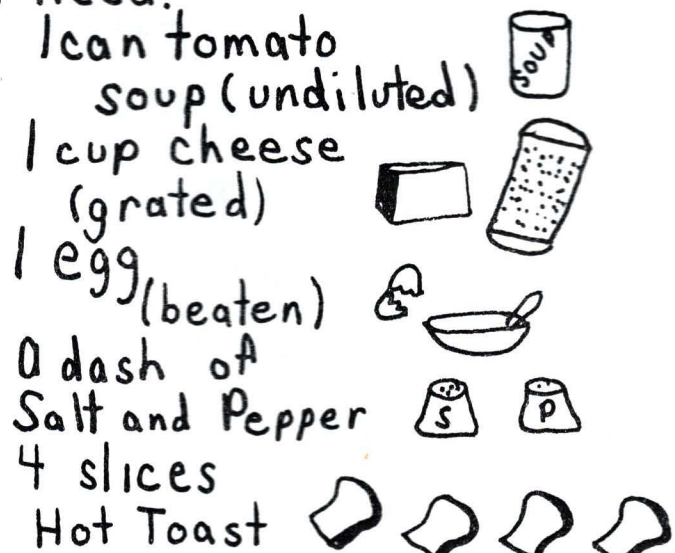 need:
1 can tomato
soup (undiluted)
SOUP
1 cup cheese
(grated)
1 egg
(beaten)
a dash of
Salt and Pepper
S P
4 slices
Hot Toast